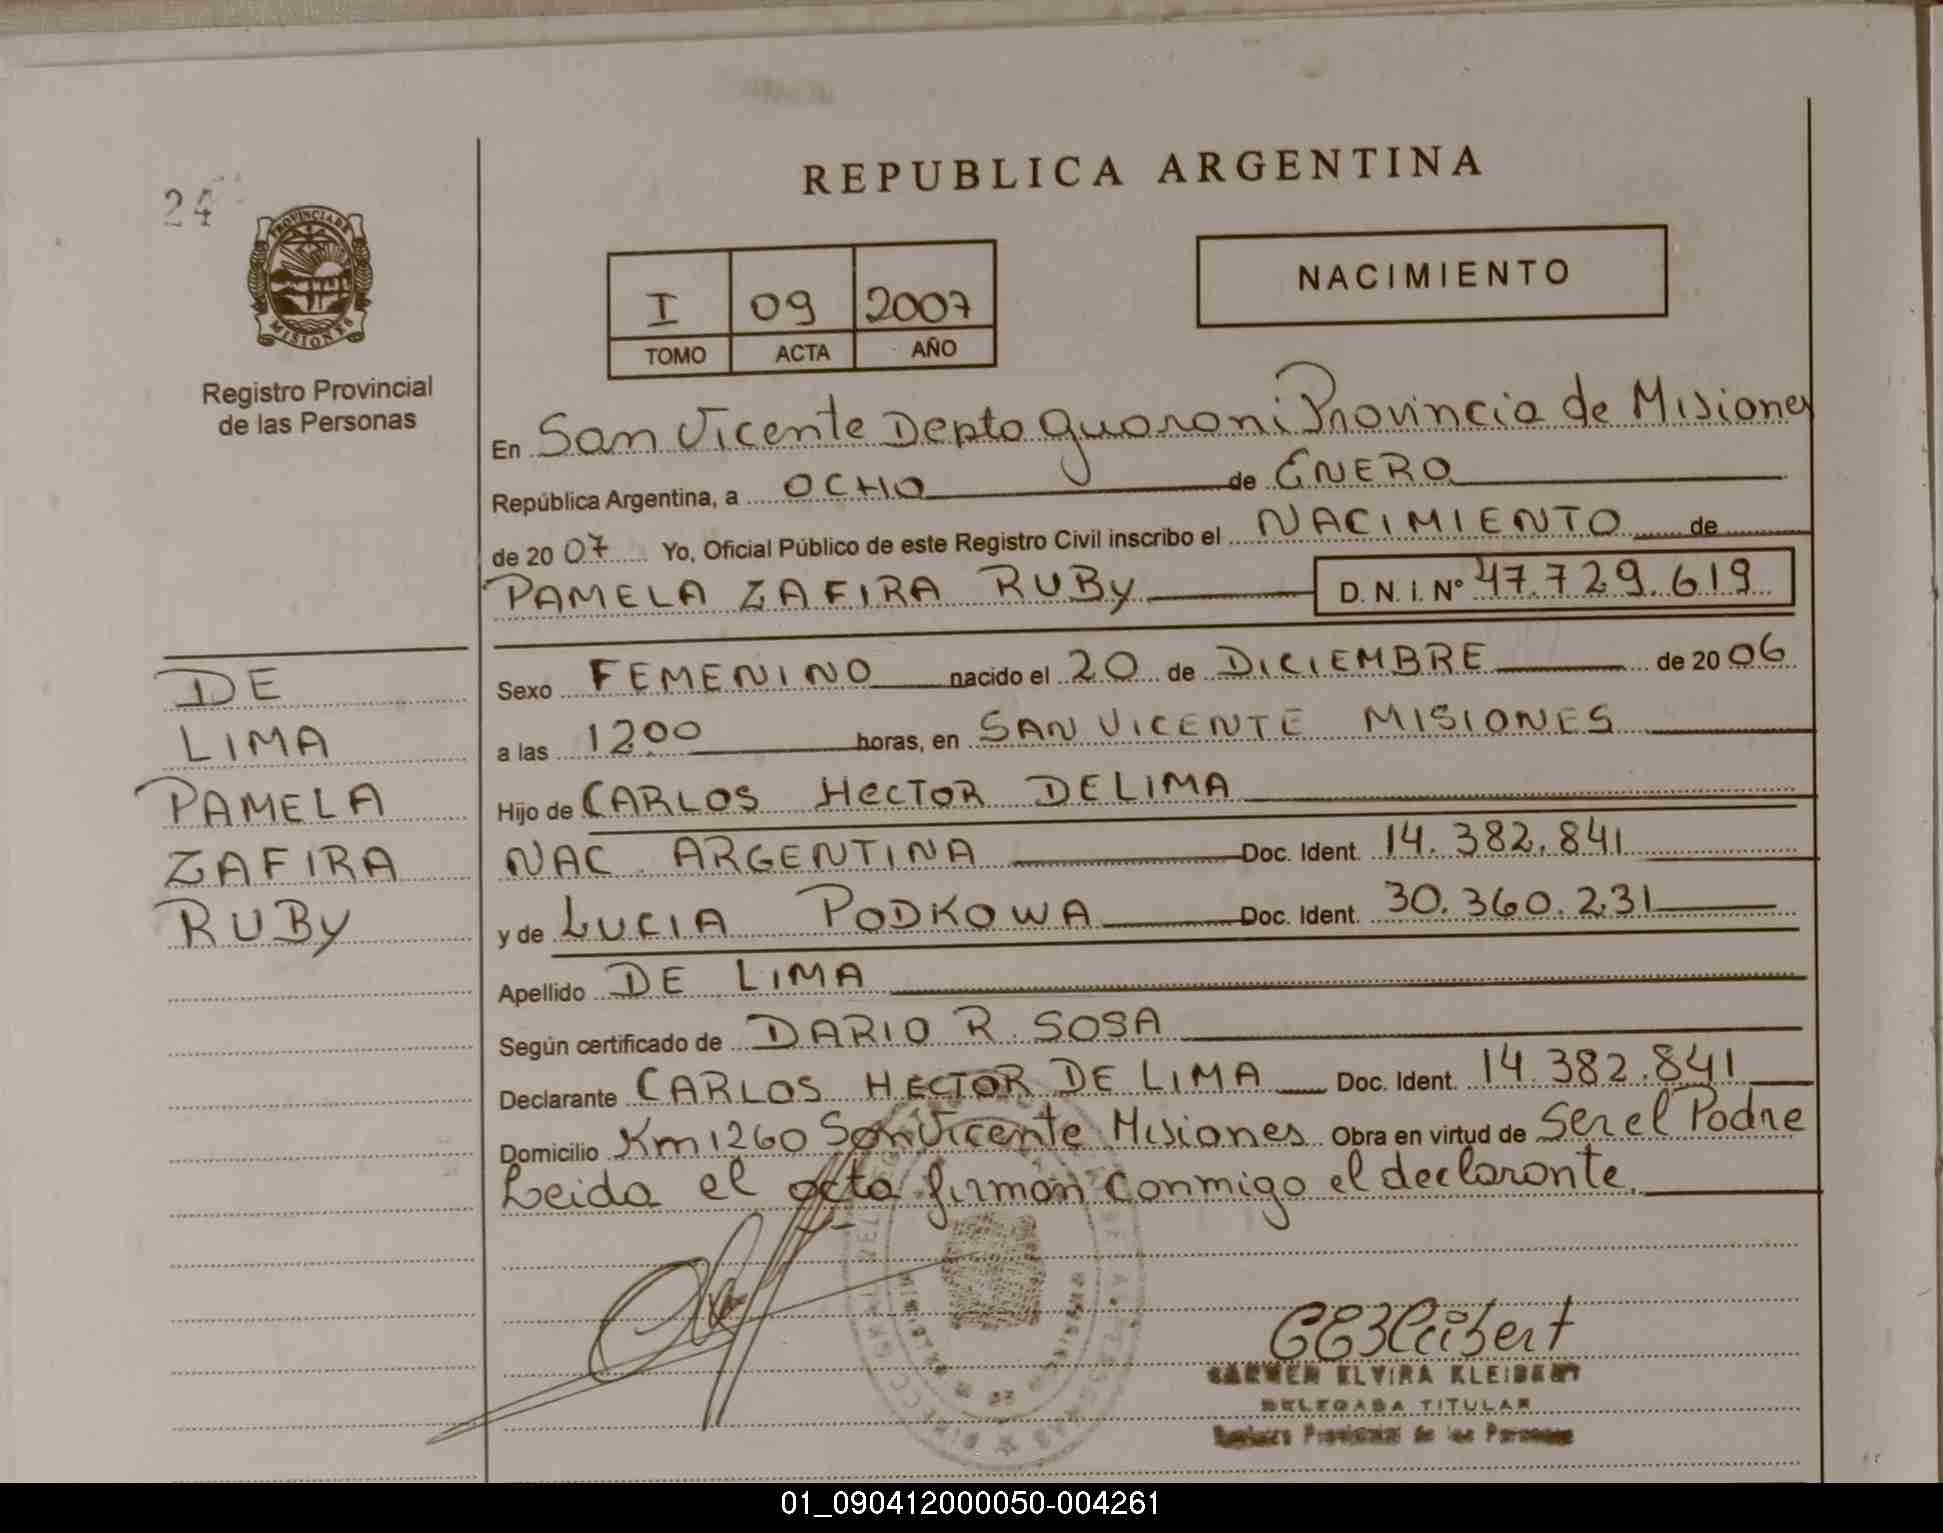 REPUBLICA ARGENTINA
24
PROVINCIA DE
MISIONES
Registro Provincial
de las Personas
I 09 2007
TOMO ACTA AÑO
NACIMIENTO
En San Vicente Depto Guarani Provincia de Misiones
República Argentina, a OCHO de ENERO
de 2007 Yo, Oficial Público de este Registro Civil inscribo el NACIMIENTO de
PAMELA ZAFIRA RUBy D. N. I. Nº 47.729.619
DE
LIMA
PAMELA
ZAFIRA
RUBy
Sexo FEMENINO nacido el 20 de DICIEMBRE de 2006
a las 1200 horas, en SAN VICENTE MISIONES
Hijo de CARLOS HECTOR DELIMA
NAC ARGENTINA Doc. Ident. 14.382.841
y de LUCIA PODKOWA Doc. Ident. 30.360.231
Apellido DE LIMA
Según certificado de DARIO R. SOSA
Declarante CARLOS HECTOR DE LIMA Doc. Ident. 14.382.841
Domicilio Km 1260 San Vicente Misiones Obra en virtud de Ser el Padre
Leida el acta firman conmigo el declarante.
CEKleibert
CARMEN ELVIRA KLEIBERT
DELEGADA TITULAR
Registro Provincial de las Personas
01_090412000050-004261